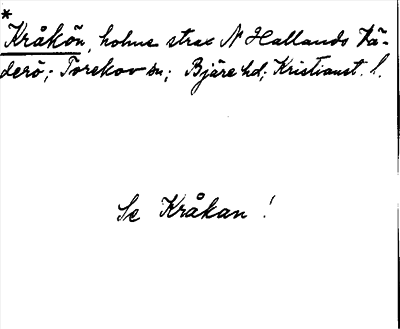 *
Kråkön, holme strax N Hallands Vä-
derö; Torekov sn; Bjäre hd; Kristianst. l.
Se Kråkan!